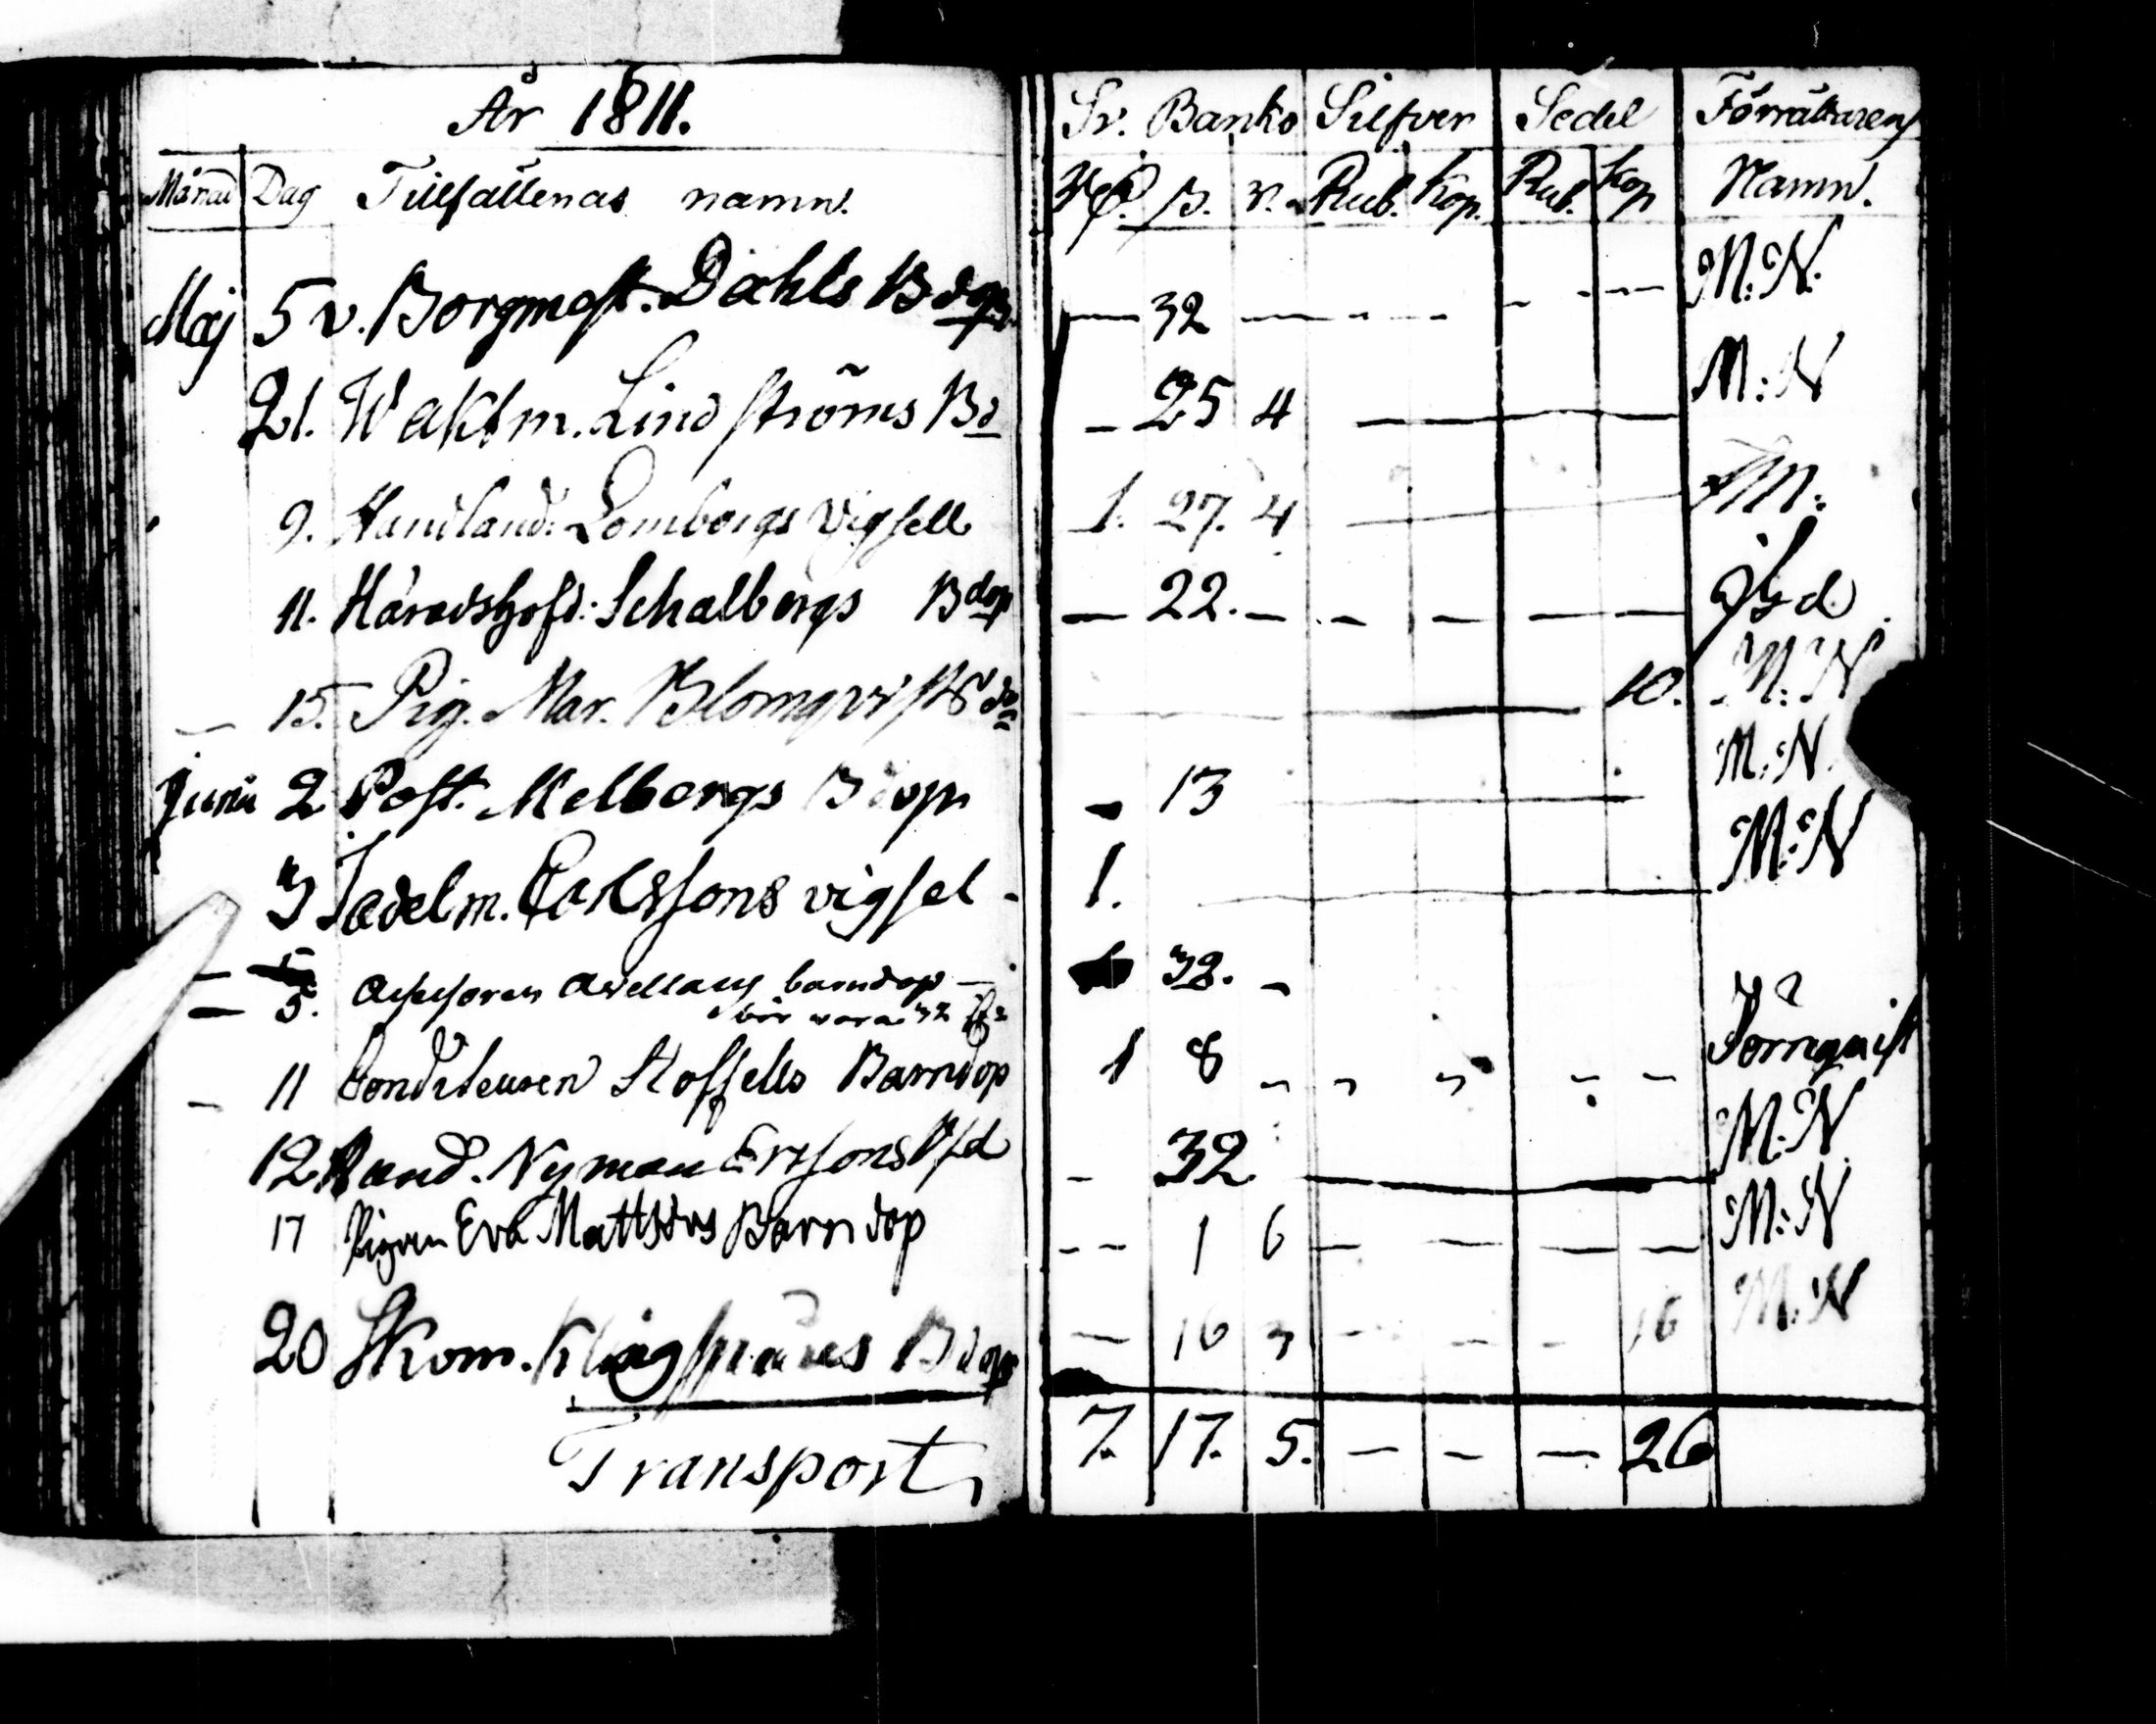 År 1811.
Månad Dag Tillfällenas namn. Sv. Banko Silfver Sedel Förrättarens
Rd. ß. r. Rub. Kop. Rub. Kop Namn.
Maj 5 v. Borgmest. Dahls Bdop — 32 — - - - - — M:N.
21. Waktm. Lindströms Bd - 25 4 — M:N
9. Handland: Lombergs Vigsell 1. 27. 4 —
11. Häradshöfd: Schalbergs Bdop — 22. — - — — —
— 15. Pig. Mar. Blomqvists — 10. M:N
Junii 2 Post. Melbergs Bdop - 13 — M:N.
3 Sadelm. Erikssons vigsel - 1. — M:N
— 5. Assessoren Avellans barndop — 32. -
bör vara 32
— 11 Conditeuren Stoffells Barndop 1 8 - - - - - Törnquist
12 Hand. Nyman - 32 — M:N
17 Pigan Eva Mattsdrs Barndop -- 1 6 — — — — M:N
20 Skom. Bdop — 16 3 - - - 16 M:N
Transport 7. 17. 5. — - — 26